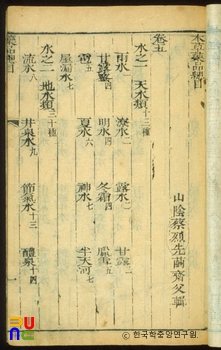 本草藥品總目
山陰蔡烈先繭齋父輯
卷五
水之一 天水類十三種
雨水 潦水二 露水二 甘露
甘露蜜四 明水四 冬霜四 臘雪五
雹五 夏冰六 神水七 半天河七
屋漏水七
水之二 地水類三十種
流水八 井泉水九 節氣水十三 醴泉十四
藥品總目
ⓒ 한국학중앙연구원